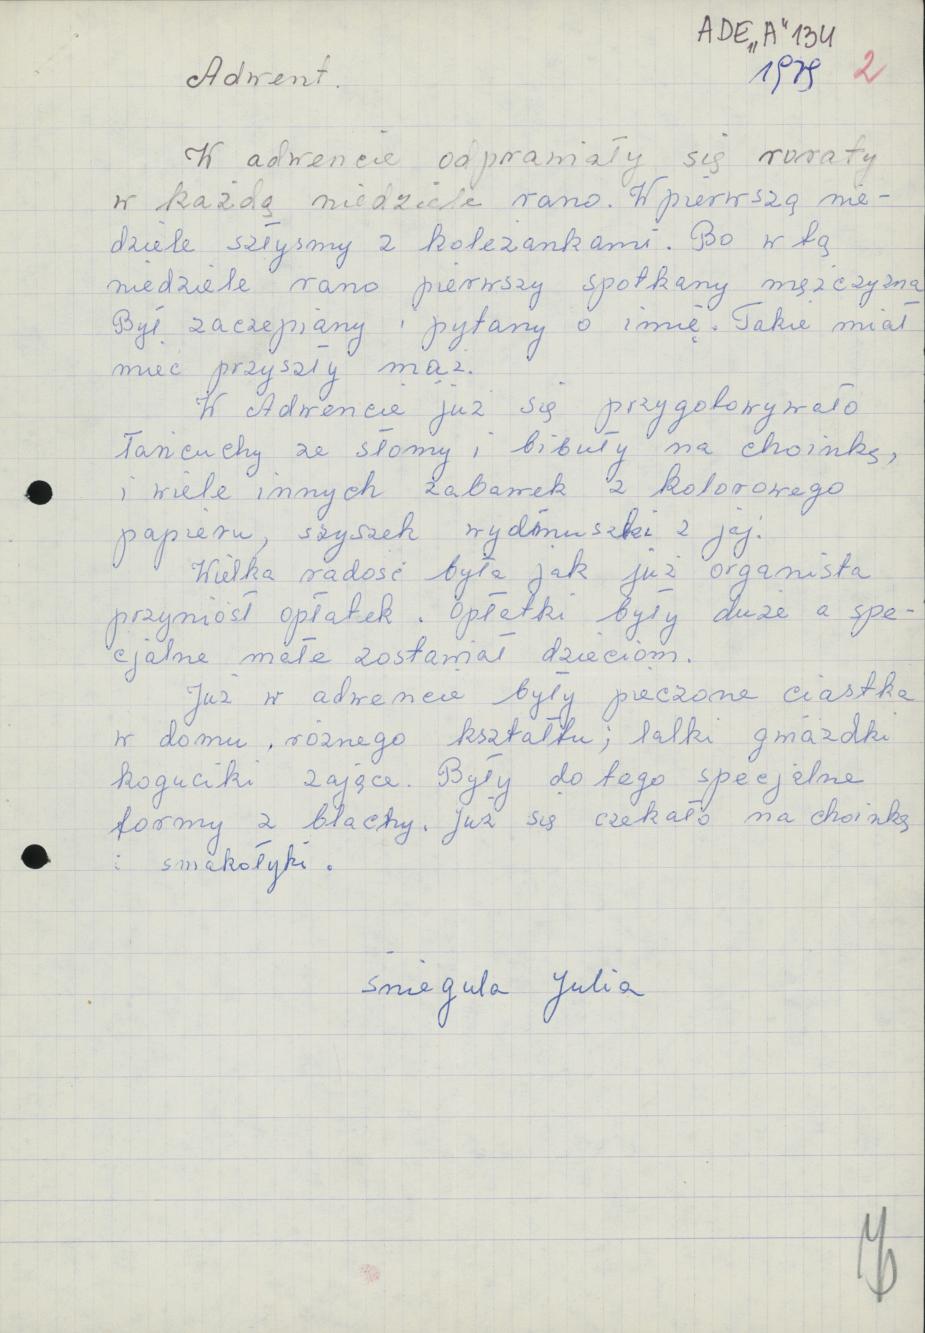 ADE „A" 134
1979 2
Adwent.
W adwencie odprawiały się roraty
w każdą niedziele rano. W pierwszą nie-
dziele szłysmy z koleżankami. Bo w tą
niedziele rano pierwszy spotkany mężczyzna
Był zaczepiany i pytany o imię. Takie miał
mieć przyszły mąż.
W Adwencie już się przygotowywało
łańcuchy ze słomy i bibuły na choinkę,
i wiele innych zabawek z kolorowego
papieru, szyszek wydmuszki z jaj.
Wielka radość była jak już organista
przyniósł opłatek. Opłatki były duże a spe-
cjalne małe zostawiał dzieciom.
Już w adwencie były pieczone ciastka
w domu, różnego kształtu; lalki gwiazdki
koguciki zające. Były do tego specjalne
formy z blachy. Już się czekało na choinkę
i smakołyki.
Śniegula Julia